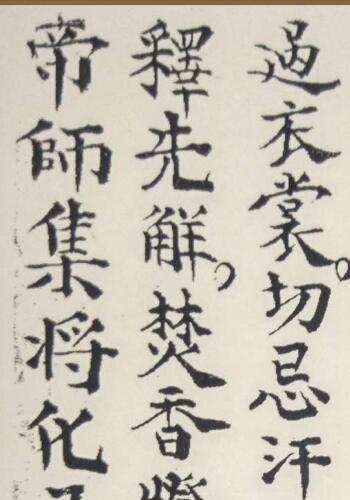 過衣裳。切忌汗
釋先解。焚香
帝師集將化